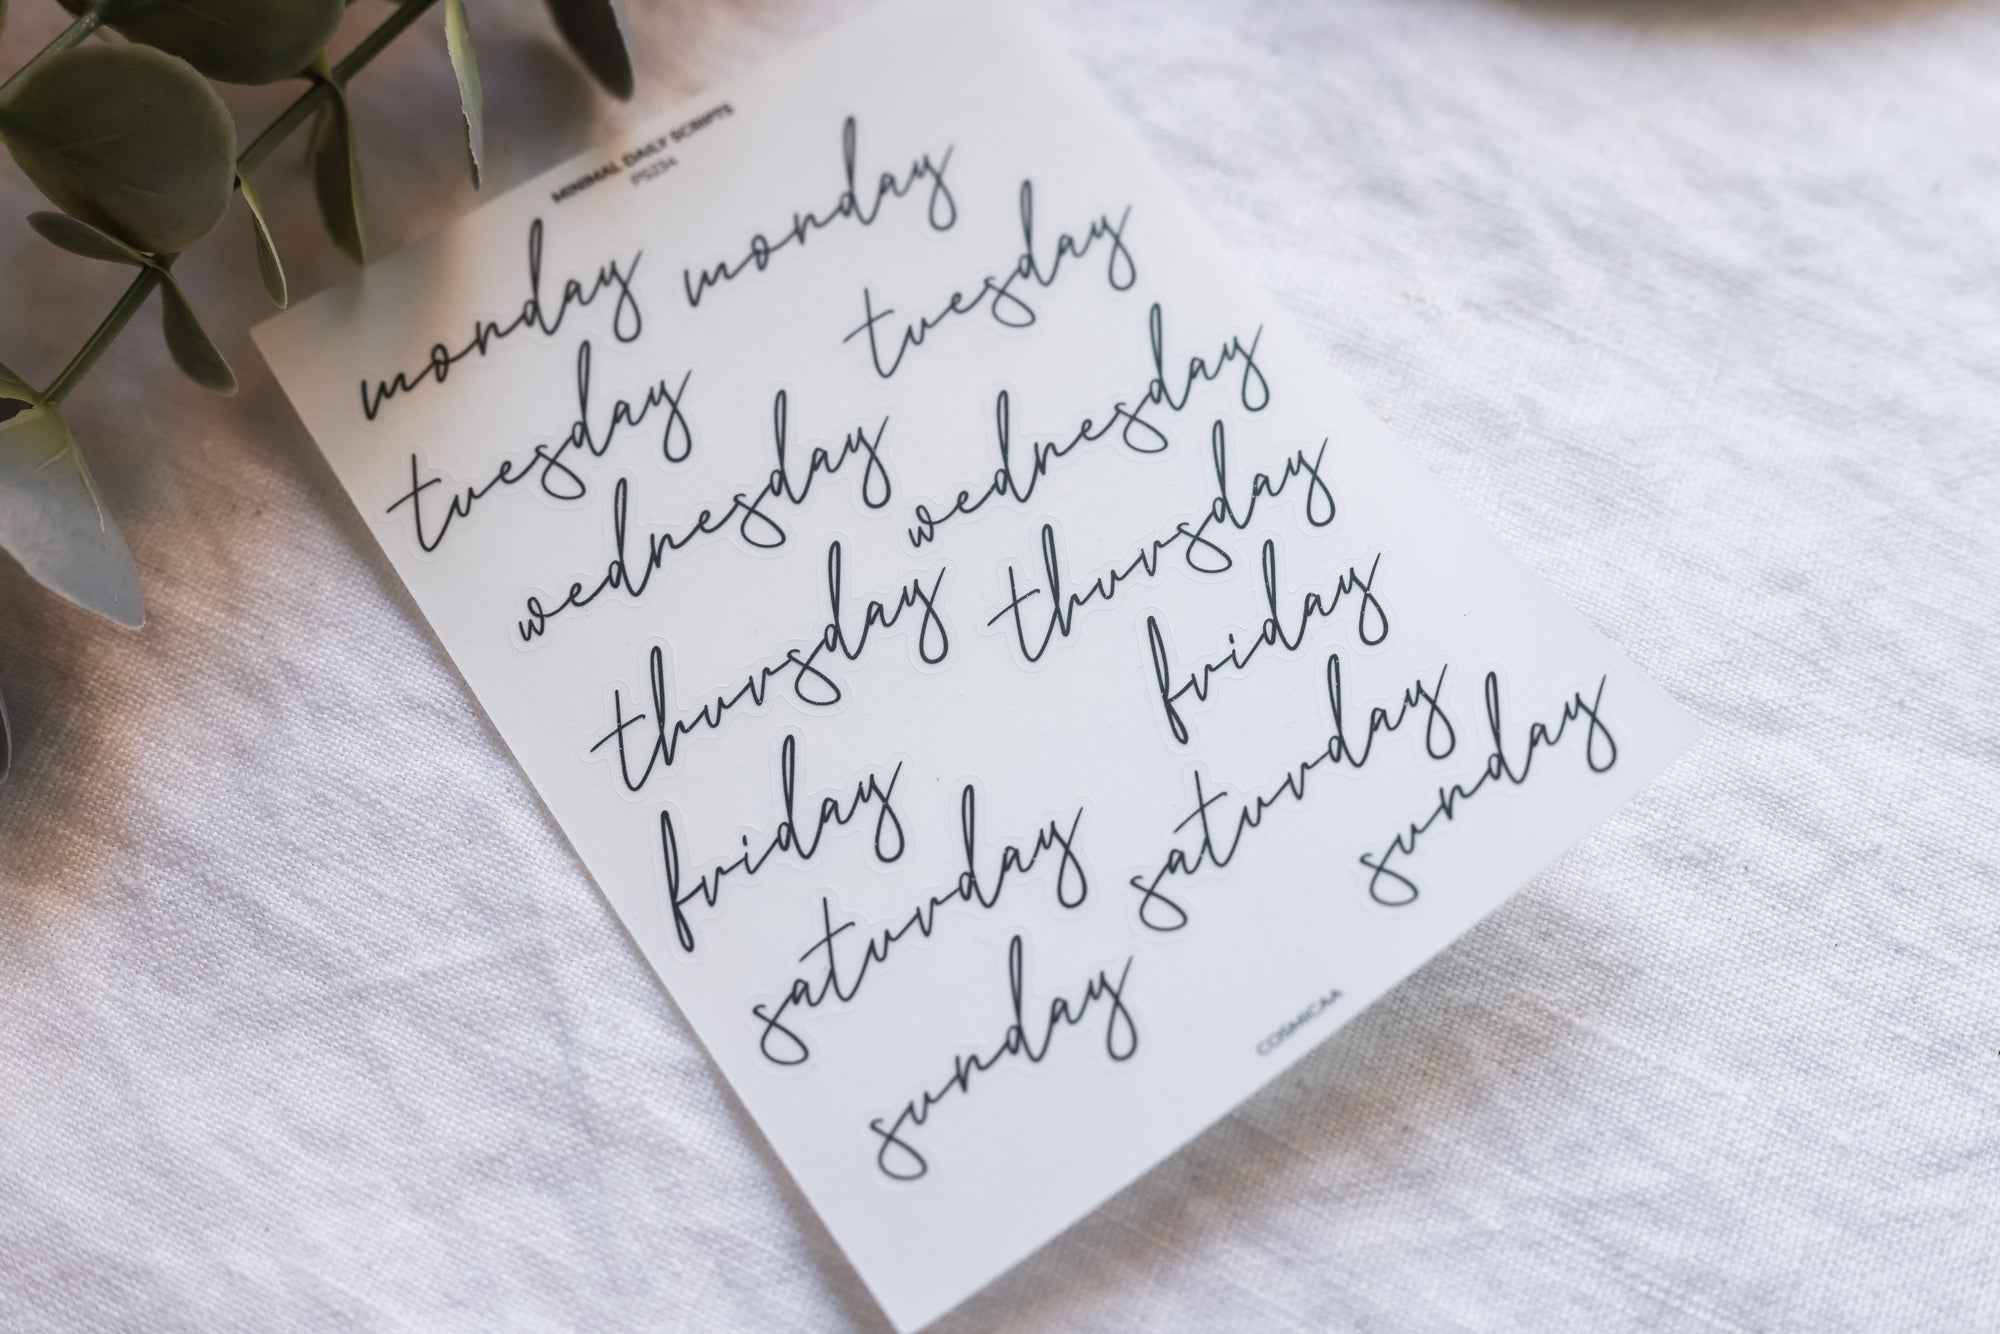 MINIMAL DAILY SCRIPTS
PS234
monday monday
tuesday tuesday
wednesday wednesday
thursday thursday
friday friday
saturday saturday
sunday sunday
COSMICAA